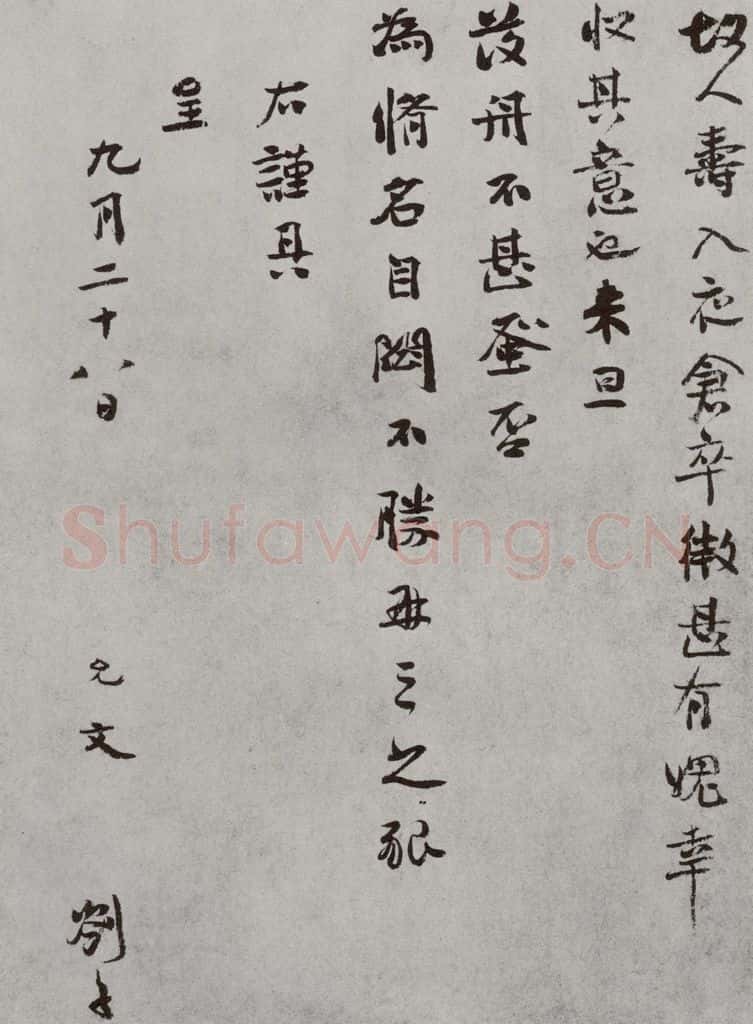 故人壽入夜倉卒微甚有媿幸
收其意也来旦
發舟不甚蚤否
為脩名目不勝再三之
右謹具
呈
九月二十八日 允文 劄子
Shufawang.CN